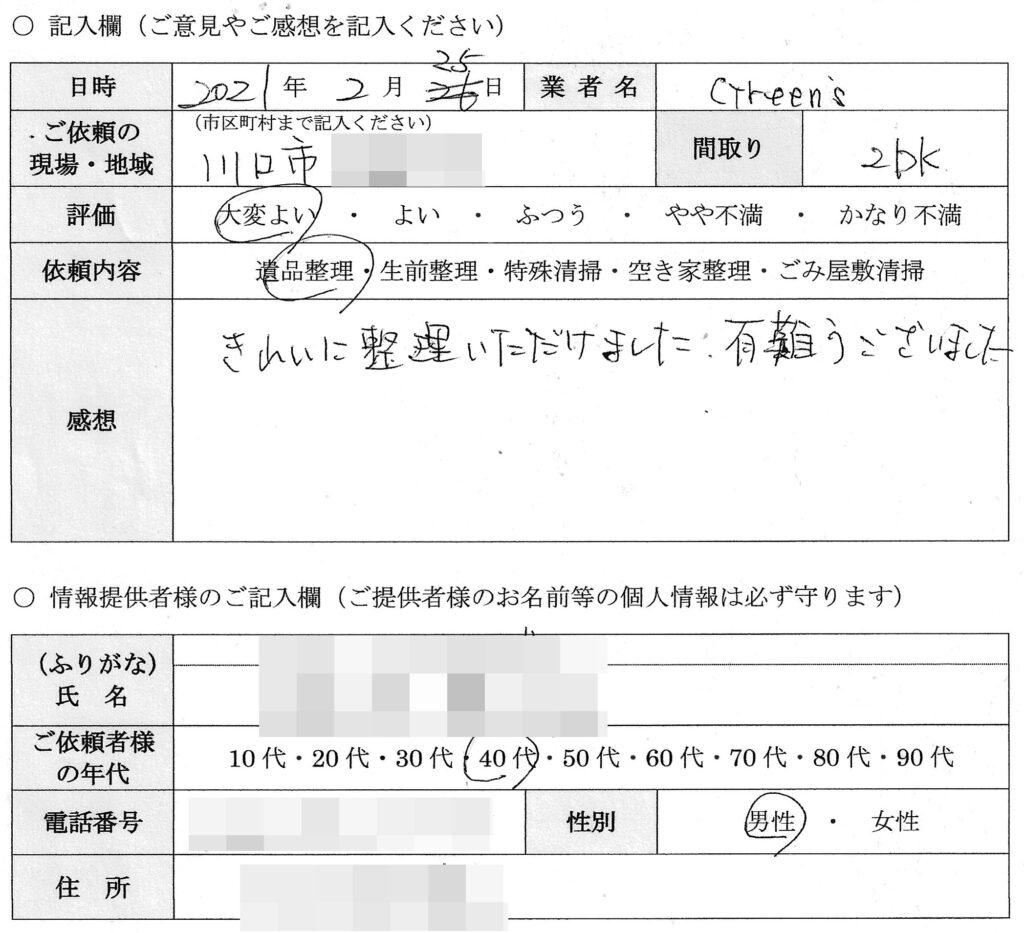 ○ 記入欄（ご意見やご感想を記入ください）
日時 2021年 2月 25 26日 業者名 Green's
ご依頼の現場・地域 （市区町村まで記入ください） 川口市 間取り 2DK
評価 大変よい ・ よい ・ ふつう ・ やや不満 ・ かなり不満
依頼内容 遺品整理・生前整理・特殊清掃・空き家整理・ごみ屋敷清掃
感想 きれいに整理いただけました、有難うございました
○ 情報提供者様のご記入欄（ご提供者様のお名前等の個人情報は必ず守ります）
（ふりがな）
氏 名
ご依頼者様の年代 10代・20代・30代・40代・50代・60代・70代・80代・90代
電話番号 性別 男性 ・ 女性
住 所